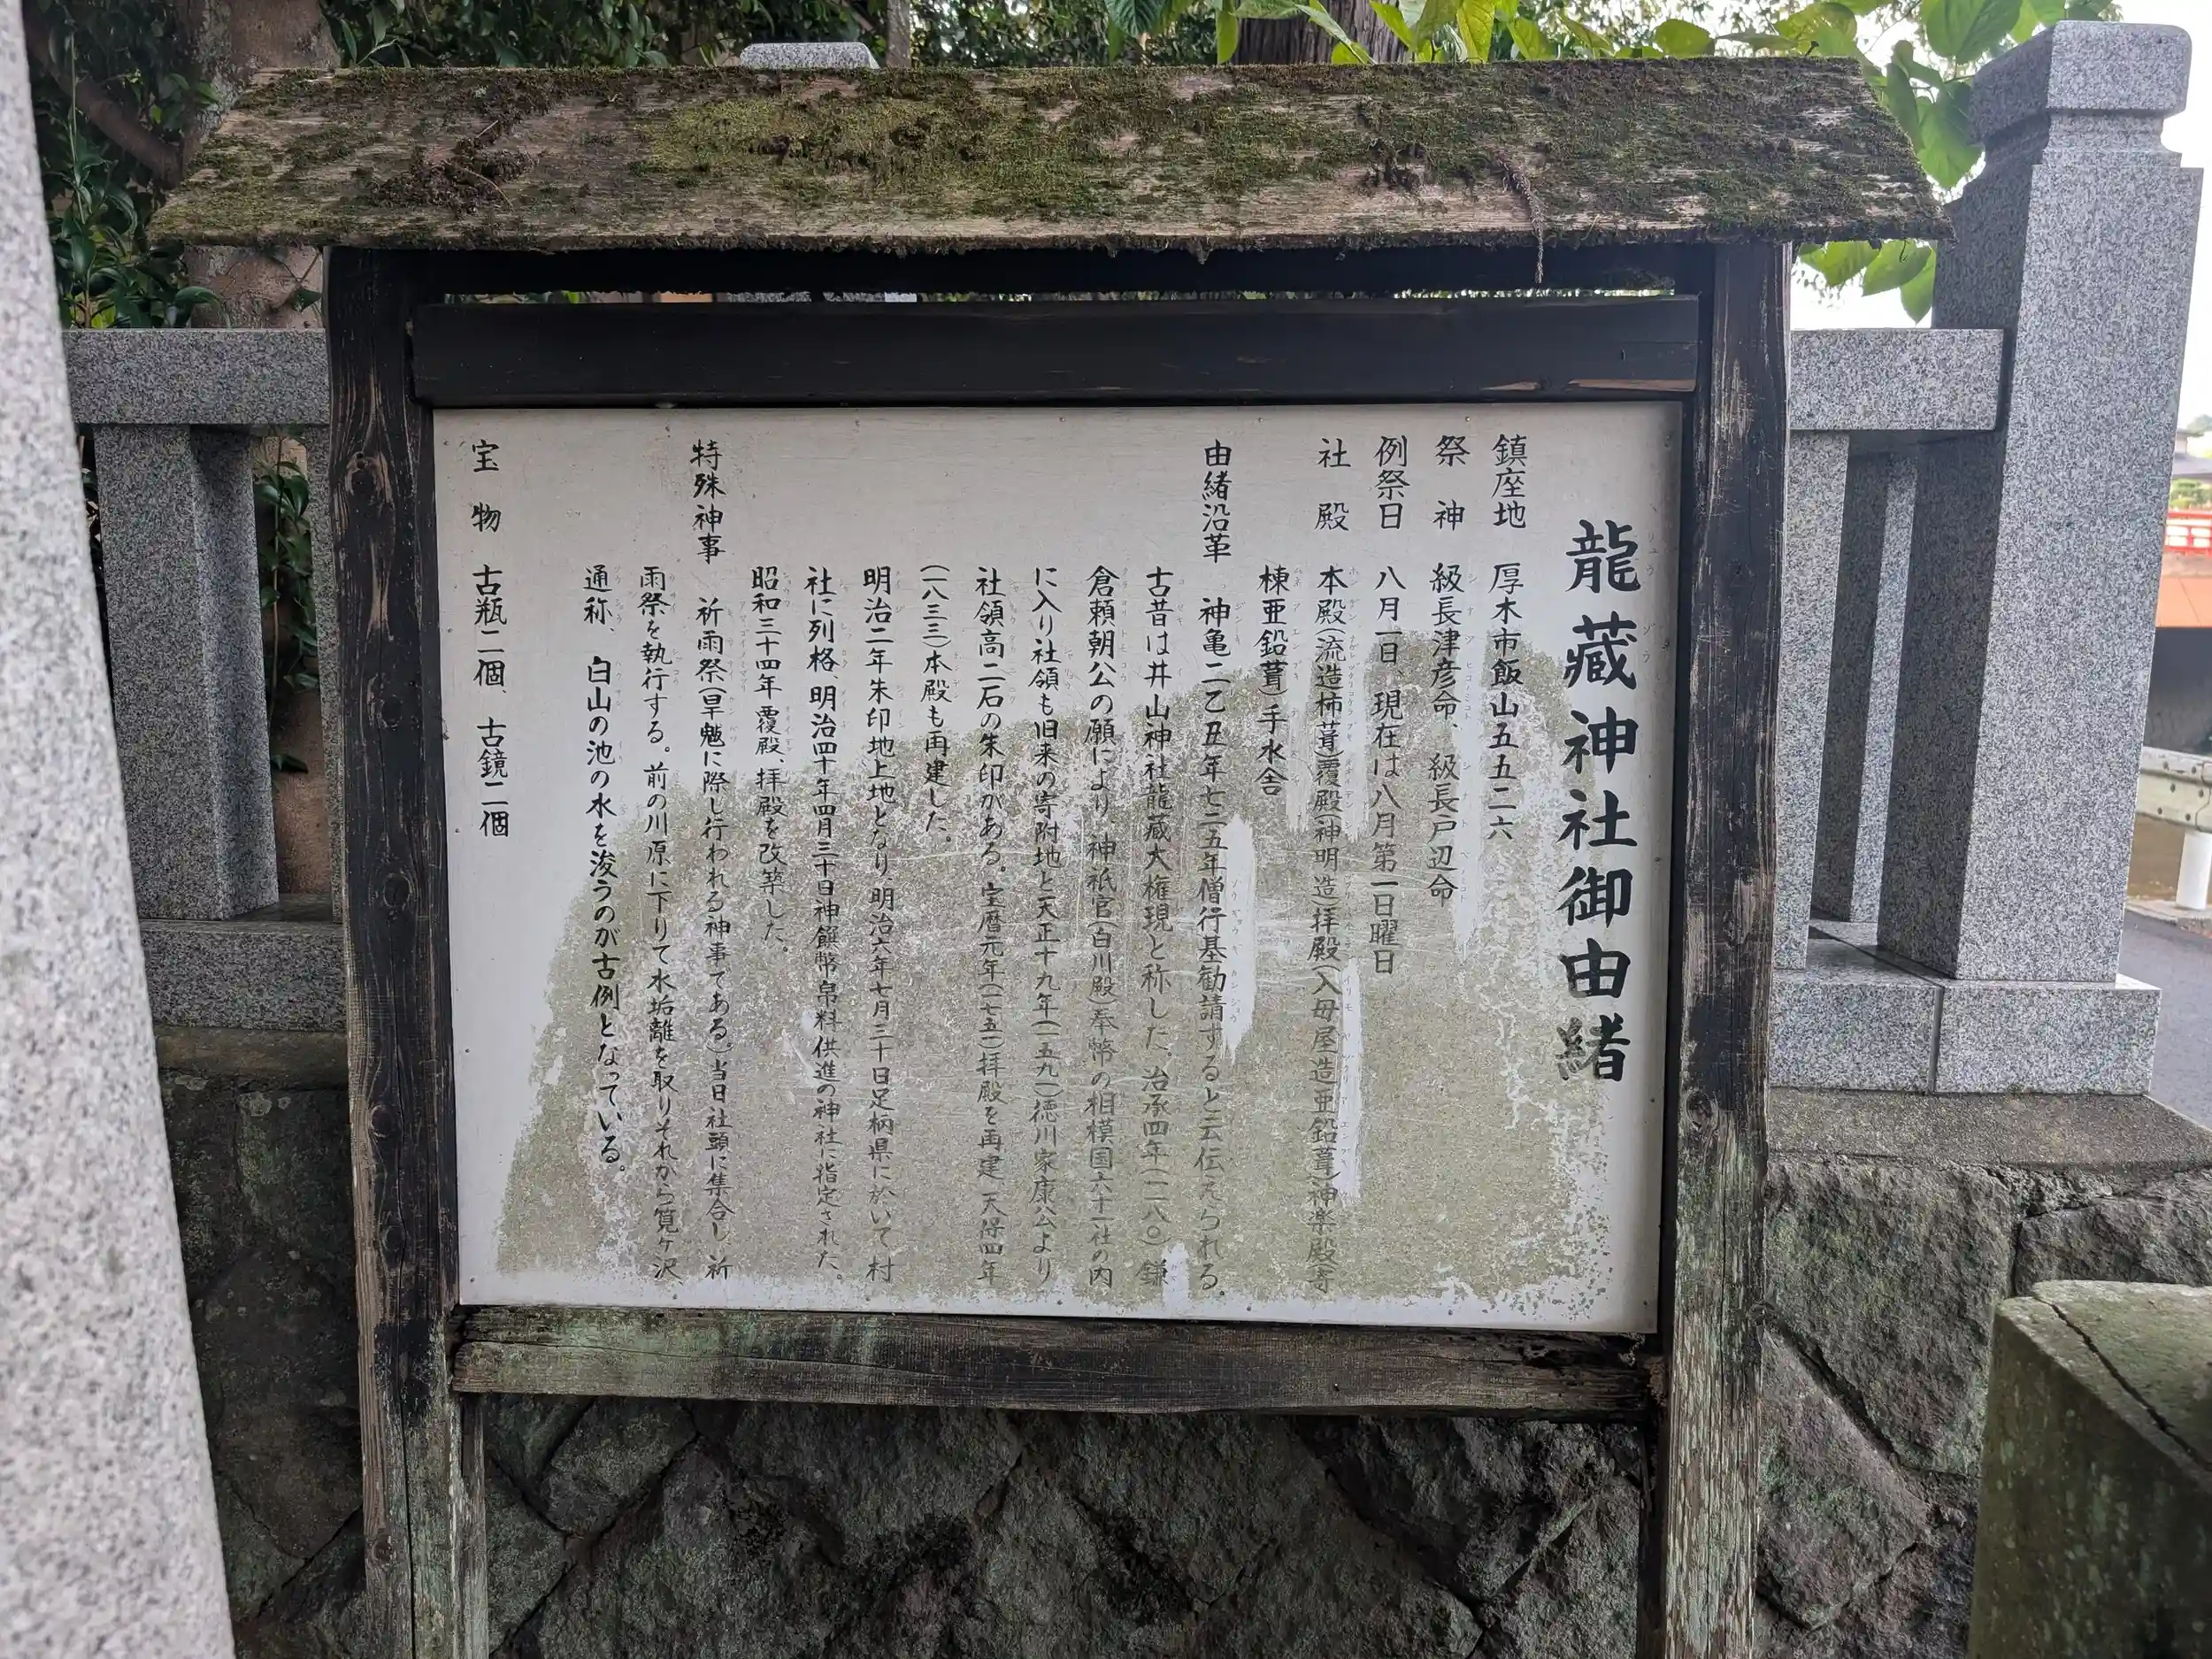 龍蔵神社御由緒
鎮座地 厚木市飯山五五二六
祭神 級長津彦命、級長戸辺命
例祭日 八月一日、現在は八月第一日曜日
社殿 本殿(流造柿葺)覆殿(神明造)拝殿(入母屋造亜鉛葺)神楽殿(寄
棟亜鉛葺)手水舎
由緒沿革 神亀二乙丑年七二五年僧行基勧請すると云伝えられる。
古昔は井山神社龍蔵大権現と称した。治承四年(一一八〇)鎌
倉頼朝公の願により、神祇官(白川殿)奉幣の相模国六十一社の内
に入り社領も旧来の寄附地と天正十九年(一五九一)徳川家康公より
社領高二石の朱印がある。宝暦元年(一七五一)拝殿を再建 天保四年
(一八三三)本殿も再建した。
明治二年朱印地上地となり、明治六年七月三十日足柄県に於いて村
社に列格、明治四十年四月三十日神饌幣帛料供進の神社に指定された。
昭和三十四年覆殿、拝殿を改築した。
特殊神事 祈雨祭(旱魃に際し行われる神事である。)当日社頭に集合し、祈
雨祭を執行する。前の川原に下りて水垢離を取りそれから筧ヶ沢
通称、白山の池の水を浚うのが古例となっている。
宝物 古瓶二個、古鏡二個